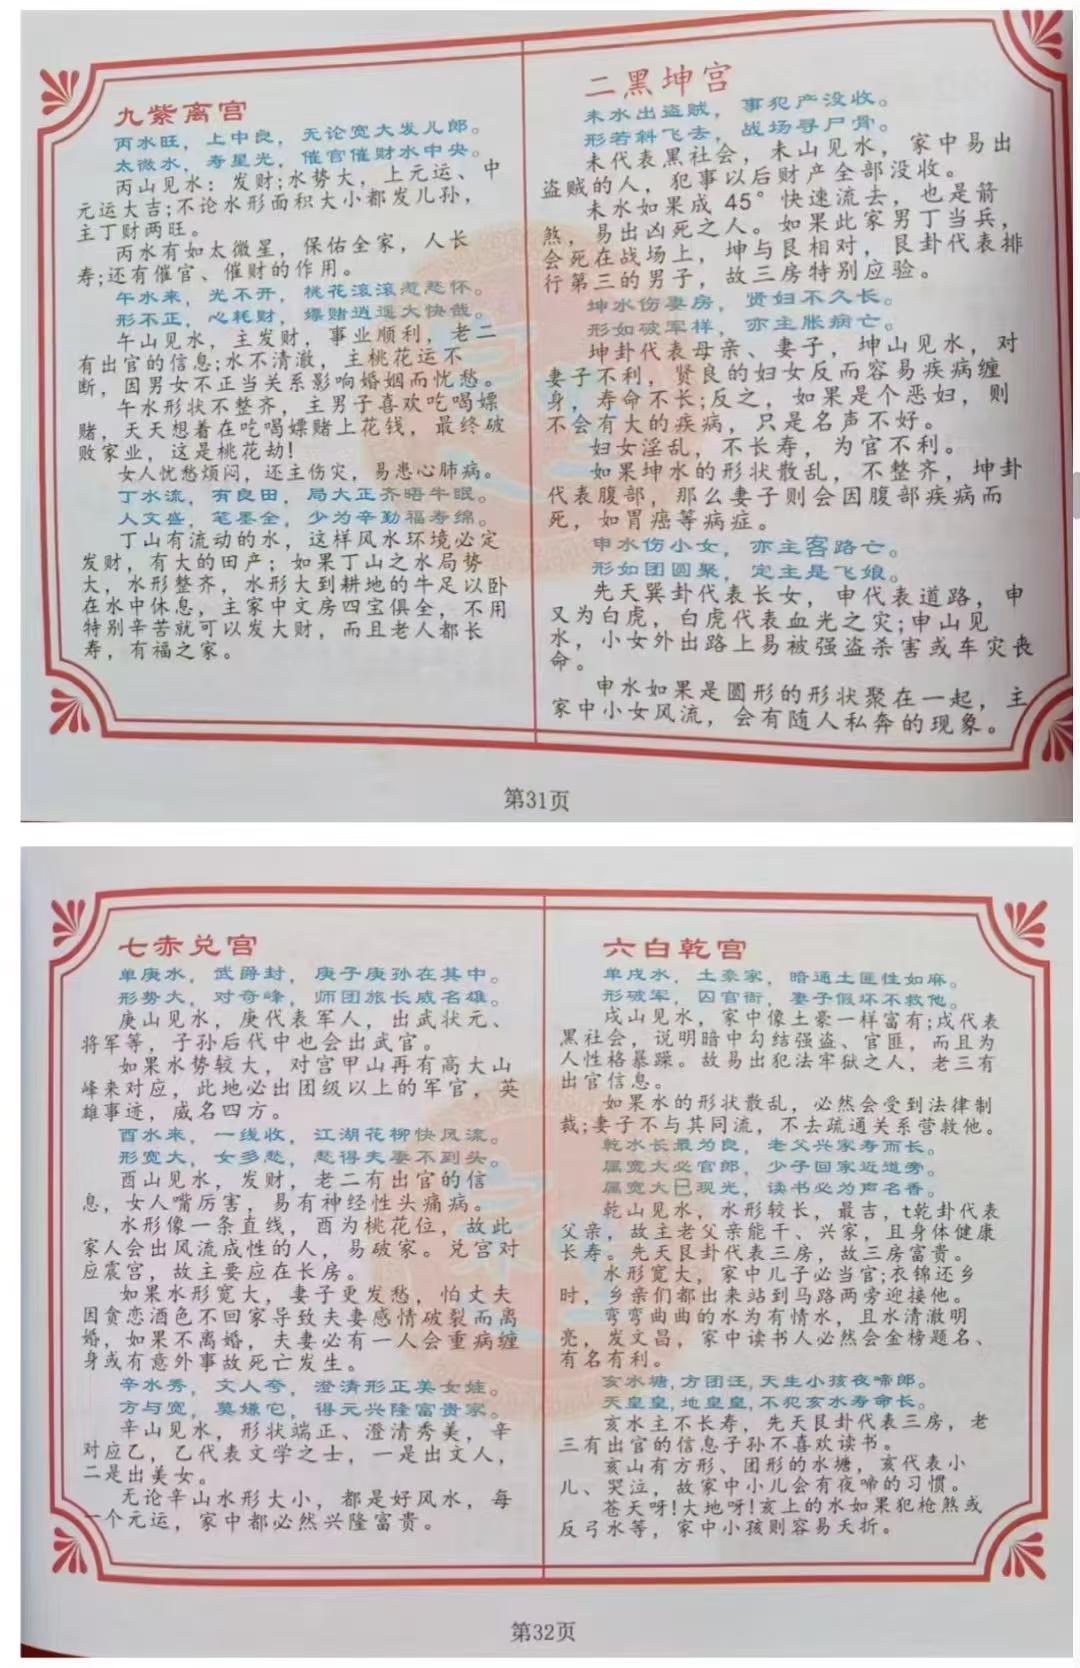 九紫离宫
丙水旺，上中良，无论宽大发儿郎。
太微水，寿星光，催官催财水中央。
丙山见水：发财;水势大，上元运、中
元运大吉;不论水形面积大小都发儿孙，
主丁财两旺。
丙水有如太微星，保佑全家，人长
寿;还有催官、催财的作用。
午水来，光不开，桃花滚滚惹愁怀。
形不正，心耗财，嫖赌逍遥大快哉。
午山见水，主发财，事业顺利，老二
有出官的信息;水不清澈，主桃花运不
断，因男女不正当关系影响婚姻而忧愁。
午水形状不整齐，主男子喜欢吃喝嫖
赌，天天想着在吃喝嫖赌上花钱，最终破
败家业，这是桃花劫!
女人忧愁烦闷，还主伤灾，易患心肺病。
丁水流，有良田，局大正齐晤牛眠。
人文盛，笔墨全，少为辛勤福寿绵。
丁山有流动的水，这样风水环境必定
发财，有大的田产；如果丁山之水局势
大，水形整齐，水形大到耕地的牛足以卧
在水中休息，主家中文房四宝俱全，不用
特别辛苦就可以发大财，而且老人都长
寿，有福之家。
二黑坤宫
未水出盗贼，事犯产没收。
形若斜飞去，战场寻尸骨。
未代表黑社会，未山见水，家中易出
盗贼的人，犯事以后财产全部没收。
未水如果成 45°快速流去，也是箭
煞，易出凶死之人。如果此家男丁当兵，
会死在战场上，坤与艮相对，艮卦代表排
行第三的男子，故三房特别应验。
坤水伤妻房，贤妇不久长。
形如破军样，亦主胀病亡。
坤卦代表母亲、妻子，坤山见水，对
妻子不利，贤良的妇女反而容易疾病缠
身，寿命不长;反之，如果是个恶妇，则
不会有大的疾病，只是名声不好。
妇女淫乱，不长寿，为官不利。
如果坤水的形状散乱，不整齐，坤卦
代表腹部，那么妻子则会因腹部疾病而
死，如胃癌等病症。
申水伤小女，亦主客路亡。
形如团圆聚，定主是飞娘。
先天巽卦代表长女，申代表道路，申
又为白虎，白虎代表血光之灾;申山见
水，小女外出路上易被强盗杀害或车灾丧
命。
申水如果是圆形的形状聚在一起，主
家中小女风流，会有随人私奔的现象。
第31页
七赤兑宫
单庚水，武爵封，庚子庚孙在其中。
形势大，对奇峰，师团旅长威名雄。
庚山见水，庚代表军人，出武状元、
将军等，子孙后代中也会出武官。
如果水势较大，对宫甲山再有高大山
峰来对应，此地必出团级以上的军官，英
雄事迹，威名四方。
酉水来，一线收，江湖花柳快风流。
形宽大，女多愁，愁得夫妻不到头。
酉山见水，发财，老二有出官的信
息，女人嘴厉害，易有神经性头痛病。
水形像一条直线，酉为桃花位，故此
家人会出风流成性的人，易破家。兑宫对
应震宫，故主要应在长房。
如果水形宽大，妻子更发愁，怕丈夫
因贪恋酒色不回家导致夫妻感情破裂而离
婚，如果不离婚，夫妻必有一人会重病缠
身或有意外事故死亡发生。
辛水秀，文人夸，澄清形正美女娃。
方与宽，莫嫌它，得元兴隆富贵家。
辛山见水，形状端正、澄清秀美，辛
对应乙，乙代表文学之士，一是出文人，
二是出美女。
无论辛山水形大小，都是好风水，每
一个元运，家中都必然兴隆富贵。
六白乾宫
单戌水，土豪家，暗通土匪性如麻。
形破军，囚官衙，妻子假坏不救他。
戌山见水，家中像土豪一样富有;戌代表
黑社会，说明暗中勾结强盗、官匪，而且为
人性格暴躁。故易出犯法牢狱之人，老三有
出官信息。
如果水的形状散乱，必然会受到法律制
裁;妻子不与其同流，不去疏通关系营救他。
乾水长最为良，老父兴家寿而长。
属宽大必官郎，少子回家近道旁。
属宽大已现光，读书必为声名香。
乾山见水，水形较长，最吉，t乾卦代表
父亲，故主老父亲能干、兴家，且身体健康
长寿。先天艮卦代表三房，故三房富贵。
水形宽大，家中儿子必当官;衣锦还乡
时，乡亲们都出来站到马路两旁迎接他。
弯弯曲曲的水为有情水，且水清澈明
亮，发文昌，家中读书人必然会金榜题名、
有名有利。
亥水塘,方团汪,天生小孩夜啼郎。
天皇皇,地皇皇,不犯亥水寿命长。
亥水主不长寿，先天艮卦代表三房，老
三有出官的信息子孙不喜欢读书。
亥山有方形、团形的水塘，亥代表小
儿、哭泣，故家中小儿会有夜啼的习惯。
苍天呀!大地呀!亥上的水如果犯枪煞或
反弓水等，家中小孩则容易夭折。
第32页